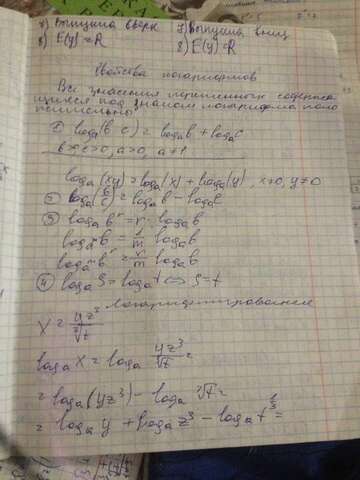 7) Выпукла вверх
8) E(y) = R
7) Выпукла вниз
8) E(y) = R
Свойства логарифмов
Все значения переменных содержа-
щихся под знаком логарифма поло
жительно
① logₐ(b·c) = logₐb + logₐc
b>0, c>0, a>0, a≠1
logₐ(xy) = logₐ|x| + logₐ|y|, x≠0, y≠0
② logₐ(b/c) = logₐb − logₐc
③ logₐbʳ = r · logₐb
logₐᵐ b = 1/m logₐb
logₐᵐ bʳ = r/m logₐb
④ logₐS = logₐt <=> S = t
Логарифмирование
X = yz³/∛t
logₐX = logₐ yz³/∛t =
= logₐ(yz³) − logₐ ∛t =
= logₐy + logₐz³ − logₐt^(1/3) =